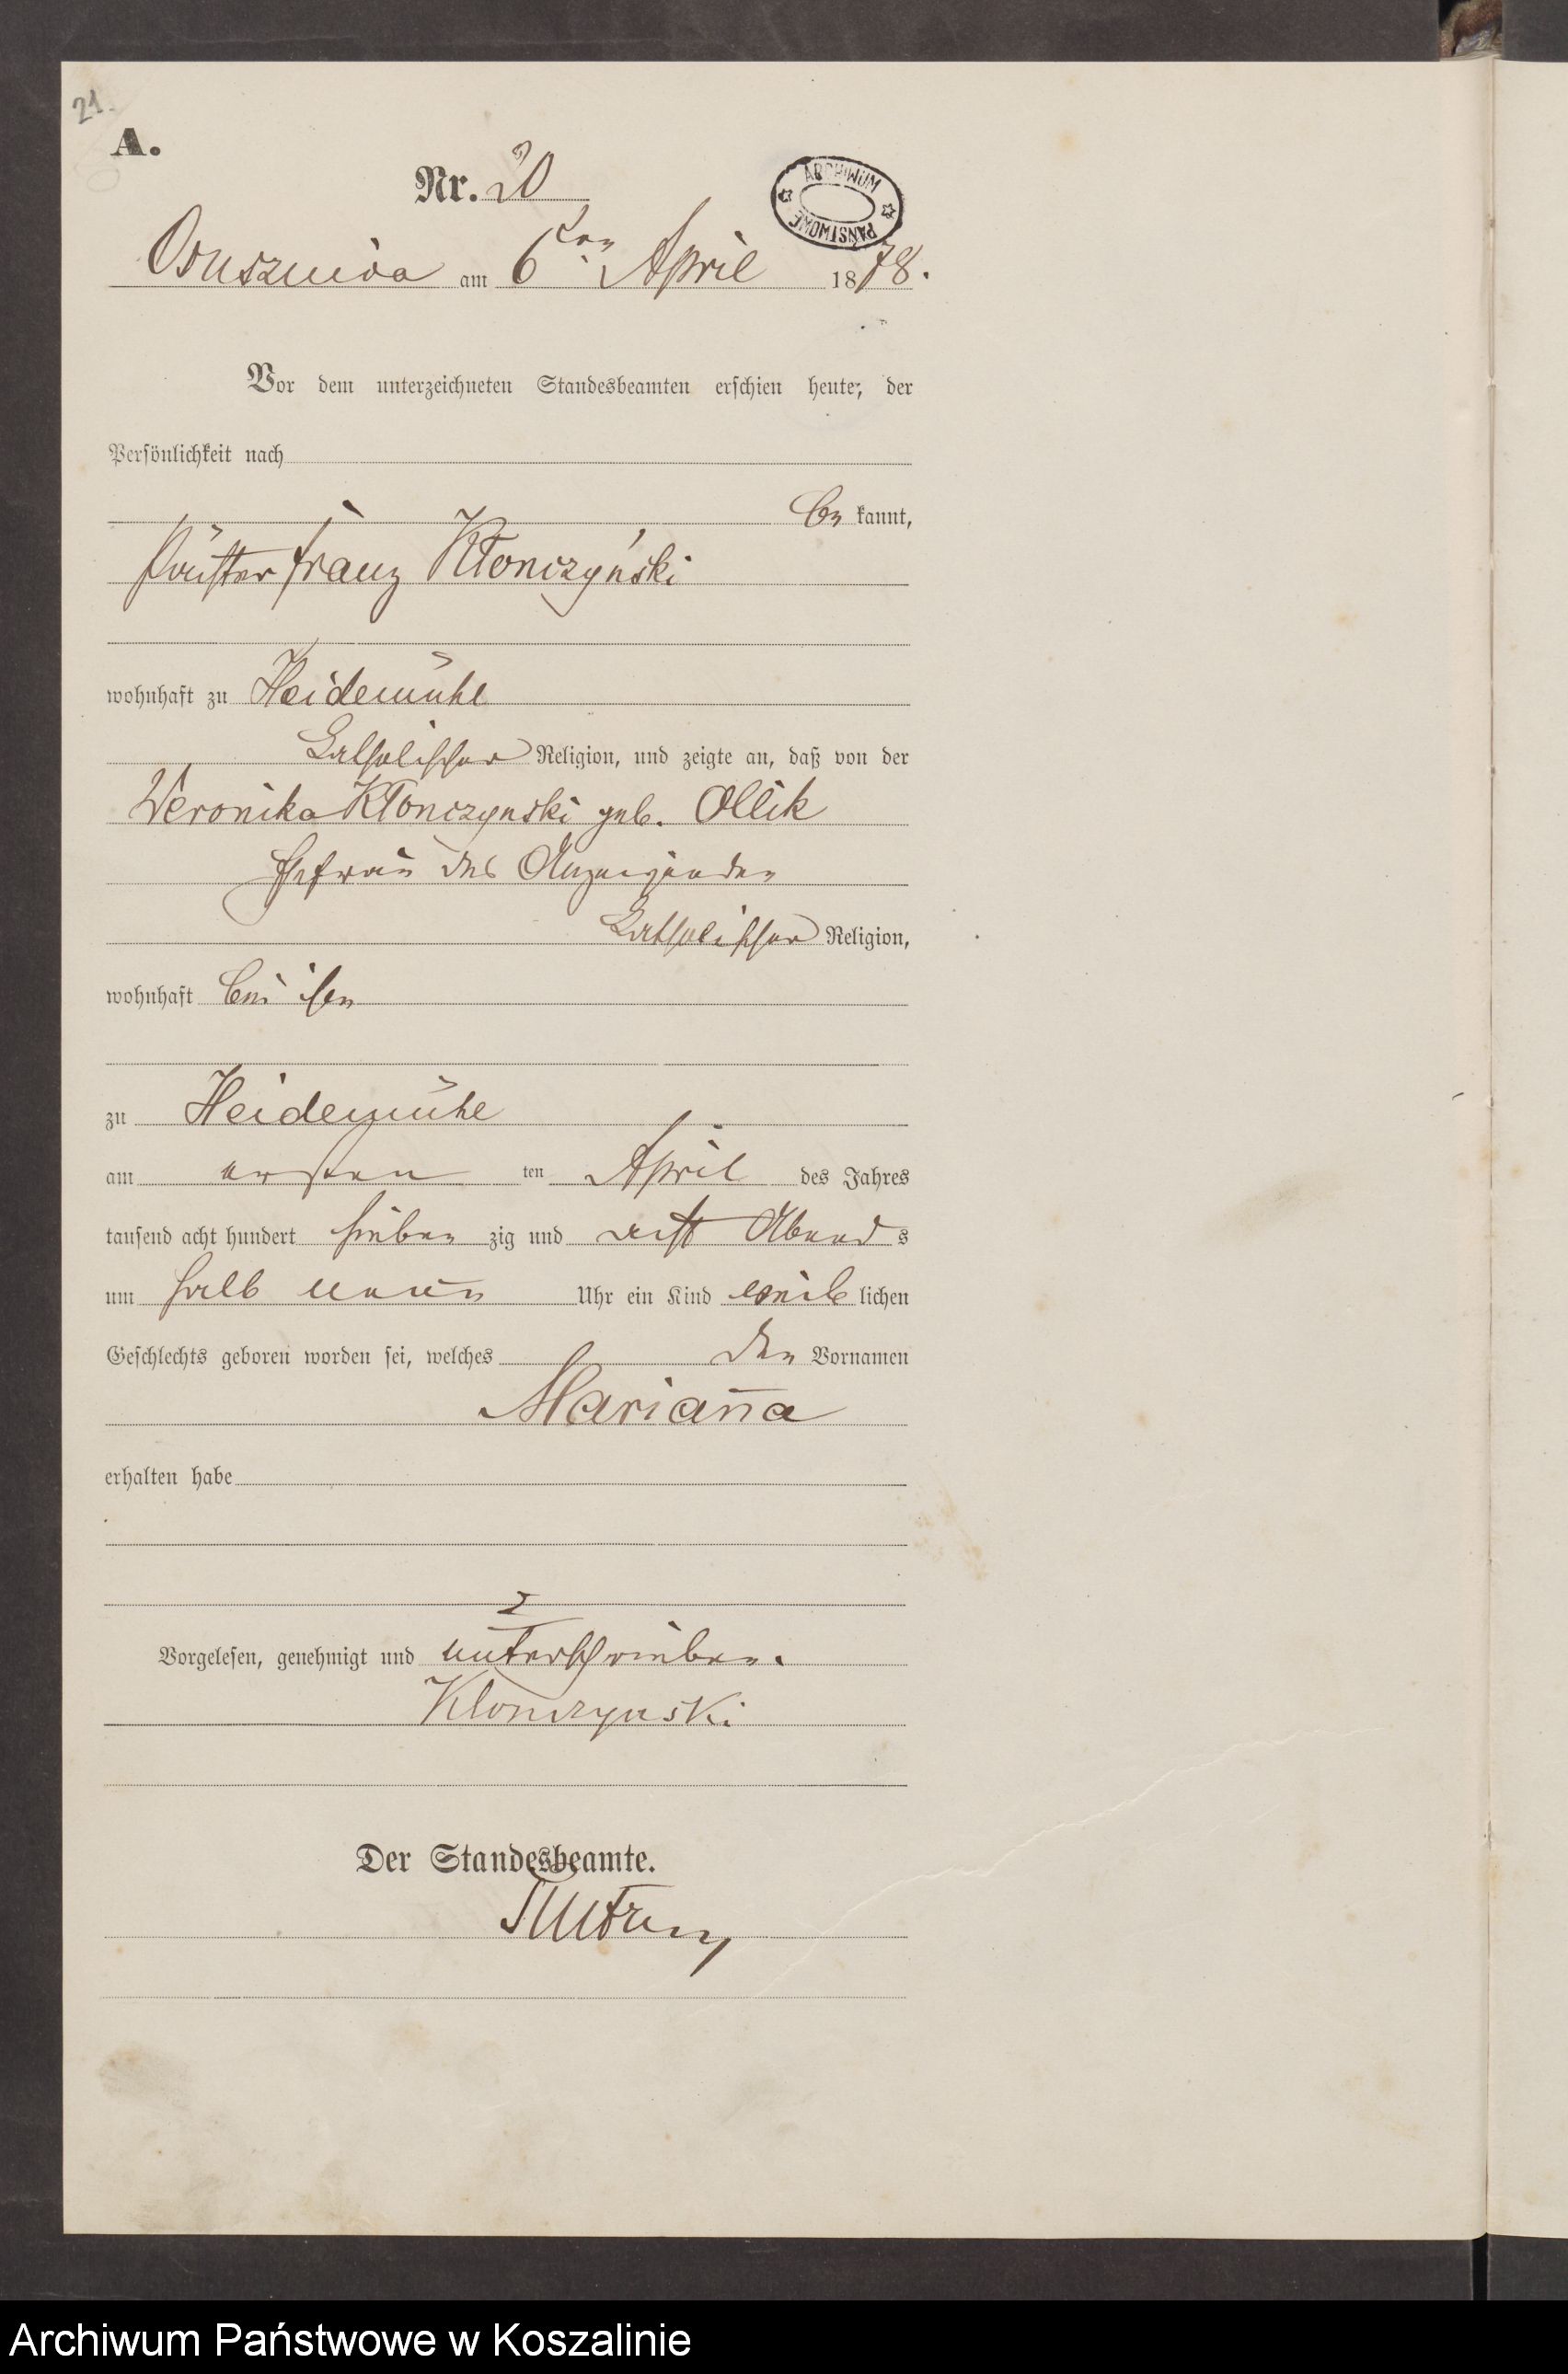 21.
A.
Nr. 20
ARCHIWUM PAŃSTWOWE
Osusznica am 6ten April 1878.
Vor dem unterzeichneten Standesbeamten erschien heute, der
Persönlichkeit nach
be kannt,
Franz Kłonczyński
wohnhaft zu Heidemühl
katholischer Religion, und zeigte an, daß von der
Veronika Kłonczynski geb. Ollik
Ehefrau des Anzeigenden
katholischer Religion,
wohnhaft bei ihm
zu Heidemühl
am ersten ten April des Jahres
tausend acht hundert sieben zig und acht Abend s
um halb neun Uhr ein Kind weib lichen
Geschlechts geboren worden sei, welches den Vornamen
Marian̄a
erhalten habe
Vorgelesen, genehmigt und unterschrieben.
Klonczynski
Der Standesbeamte.
Archiwum Państwowe w Koszalinie